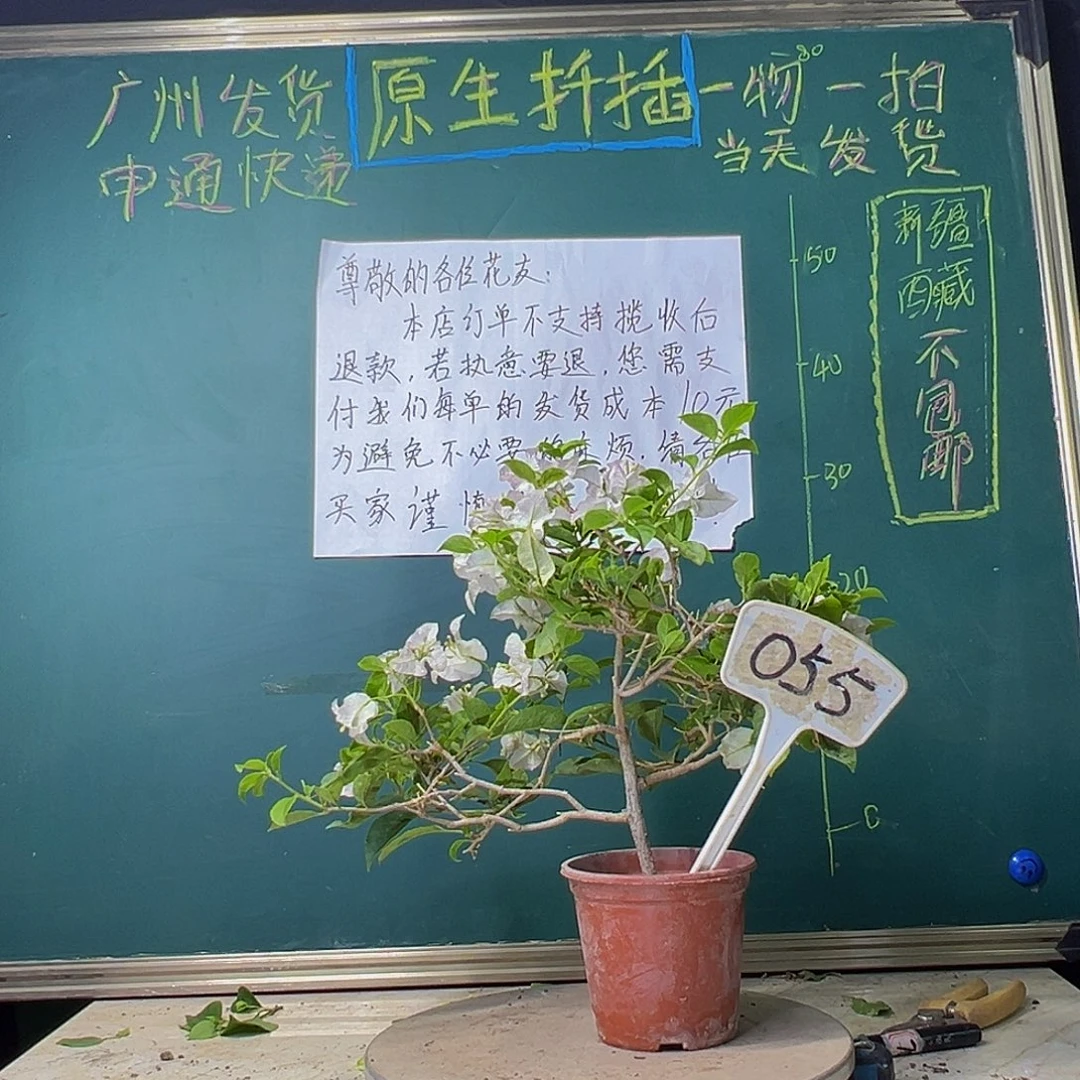 广州发货
申通快递
原生扦插
一物一拍
当天发货
新疆
西藏
不包邮
80
50
40
30
20
0
尊敬的各位花友:
本店订单不支持揽收后
退款,若执意要退,您需支
付我们每单的发货成本10元
为避免不必要的麻烦.请各位
买家谨慎
055